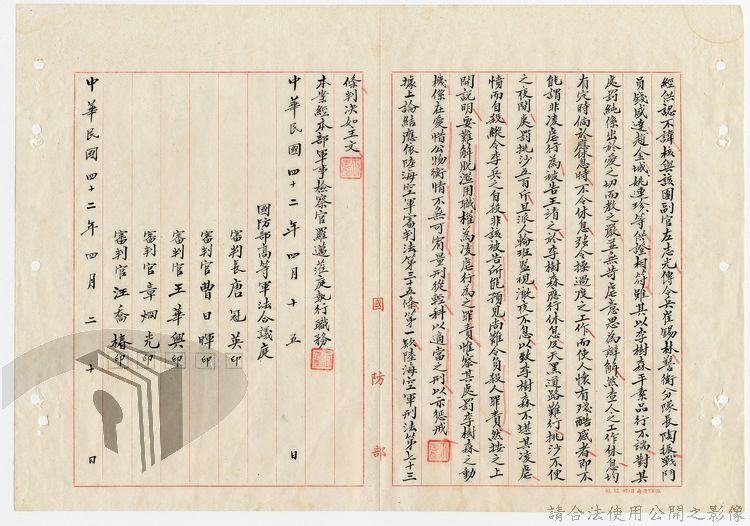 經供認不諱核與該團副官左志先傳令兵崔賜林警衛分隊長陶振戰鬥
員戚盛達趙金城姚連珍等供證相符雖其以李樹森平素品行不端對其
處罰純係出於愛之切而教之嚴並無苛虐意思為辯解然查人之工作休息均
有定時倘於應休息時不令休息強令操過度之工作而使人懷有殘酷感者即不
能謂非凌虐行為被告王清之於李樹森應行休息及天黑道路難行挑沙不便
之夜間處罰挑沙五百斤且派人輪班監視澈夜不息以致李樹森不堪其凌虐
憤而自殺縱令李兵之自殺非該被告所能預見尚難令負殺人罪責然按之上
開說明要難解脫濫用職權為凌虐行為之罪責惟察其處罰李樹森之動
機係在愛惜公物衡情不無可宥量刑從輕科以適當之刑以示懲戒
據上論結應依陸海空軍審判法第三十五條第一款陸海空軍刑法第七十三
國防部
條判決如主文
本案經本部軍事檢察官羅邁蒞庭執行職務
中華民國四十二年四月十五日
國防部高等軍法合議庭
審判長唐冠英印
審判官曹日暉印
審判官王華興印
審判官章烱光印
審判官汪喬椿印
中華民國四十二年四月二十日
請合法使用公開之影像